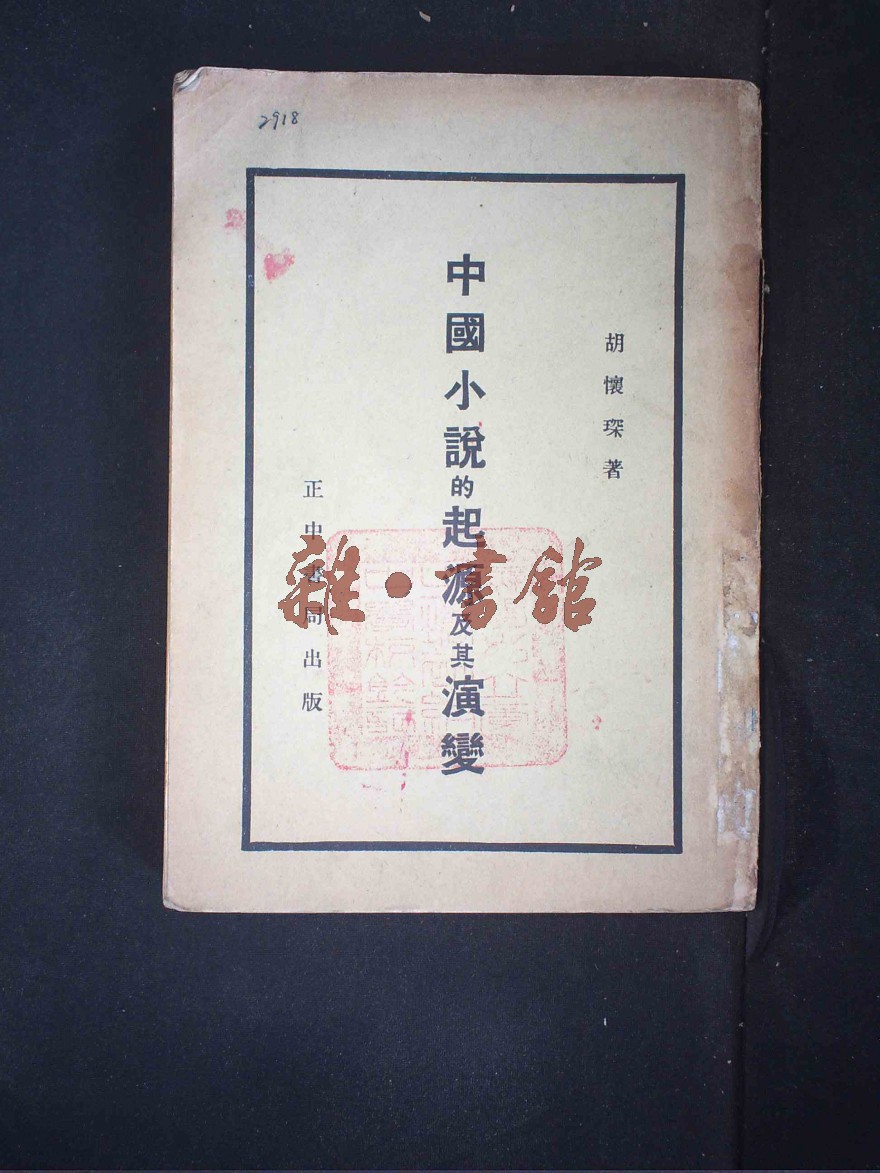 2918
胡懷琛著
中國小說的起源及其演變
正中書局出版
雜·書館